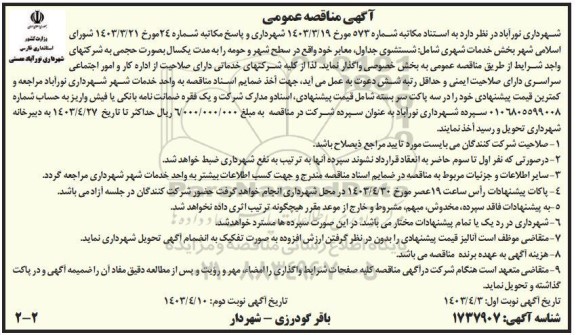 آگهی مناقصه عمومی
وزارت کشور
استانداری فارس
شهرداری نورآباد ممسنی
شهرداری نورآباد در نظر دارد به استناد مکاتبه شماره ۵۷۳ مورخ ۱۴۰۳/۳/۱۹ شهرداری و پاسخ مکاتبه شماره ۲۴مورخ ۱۴۰۳/۳/۲۱ شورای
اسلامی شهر بخش خدمات شهری شامل: شستشوی جداول، معابر خود واقع در سطح شهر و حومه را به مدت یکسال بصورت حجمی به شرکتهای
واجد شرایط از طریق مناقصه عمومی به بخش خصوصی واگذار نماید. لذا از کلیه شرکتهای خدماتی دارای صلاحیت از اداره کار و امور اجتماعی
سراسری دارای صلاحیت ایمنی و حداقل رتبه شش دعوت به عمل می آید، جهت اخذ ضمایم اسناد مناقصه به واحد خدمات شهر شهرداری نورآباد مراجعه و
کمترین قیمت پیشنهادی خود را در سه پاکت سر بسته شامل قیمت پیشنهادی، اسناد و مدارک شرکت و یک فقره ضمانت نامه بانکی یا فیش واریز به حساب شماره
۰۱۰۶۸۰۵۵۹۹۰۰۸ سپرده شهرداری نورآباد به عنوان سپرده شرکت در مناقصه به مبلغ ۶/۰۰۰/۰۰۰/۰۰۰ ریال حداکثر تا تاریخ ۱۴۰۳/۴/۲۷ به دبیرخانه
شهرداری تحویل و رسید اخذ نمایند.
۱- صلاحیت شرکت کنندگان می بایست مورد تایید مراجع ذیصلاح باشد.
۲-درصورتی که نفر اول تا سوم حاضر به انعقاد قرارداد نشوند سپرده آنها به ترتیب به نفع شهرداری ضبط خواهد شد.
۳-سایر اطلاعات و جزئیات مربوط به مناقصه در ضمایم اسناد مناقصه مندرج و جهت کسب اطلاعات بیشتر به واحد خدمات شهر شهرداری مراجعه گردد.
۴- پاکات پیشنهادات رأس ساعت ۱۹عصر مورخ ۱۴۰۳/۴/۳۰ در محل شهرداری انجام خواهد گرفت حضور شرکت کنندگان در جلسه آزاد می باشد.
۵-به پیشنهادات فاقد سپرده، مخدوش، مبهم، مشروط و خارج از موعد مقرر هیچگونه ترتیب اثری داده نخواهد شد.
۶-شهرداری در رد یک یا تمام پیشنهادات مختار می باشد. در این صورت سپرده ها مسترد خواهدشد.
۷-متقاضی موظف است آنالیز قیمت پیشنهادی را بدون در نظر گرفتن ارزش افزوده به صورت تفکیک به انضمام آگهی تحویل شهرداری نماید.
۸- هزینه آگهی به عهده برنده مناقصه می باشد.
۹-متقاضی متعهد است هنگام شرکت درآگهی مناقصه کلیه صفحات شرایط واگذاری را امضاء، مهر و رویت و پس از مطالعه دقیق مفاد آن را ضمیمه آگهی و در پاکت
گذاشته و تحویل نماید.
تاریخ آگهی نوبت اول: ۱۴۰۳/۴/۳
تاریخ آگهی نوبت دوم: ۱۴۰۳/۴/۱۰
شناسه آگهی: ۱۷۳۷۹۰۷
باقر گودرزی - شهردار
۲-۲